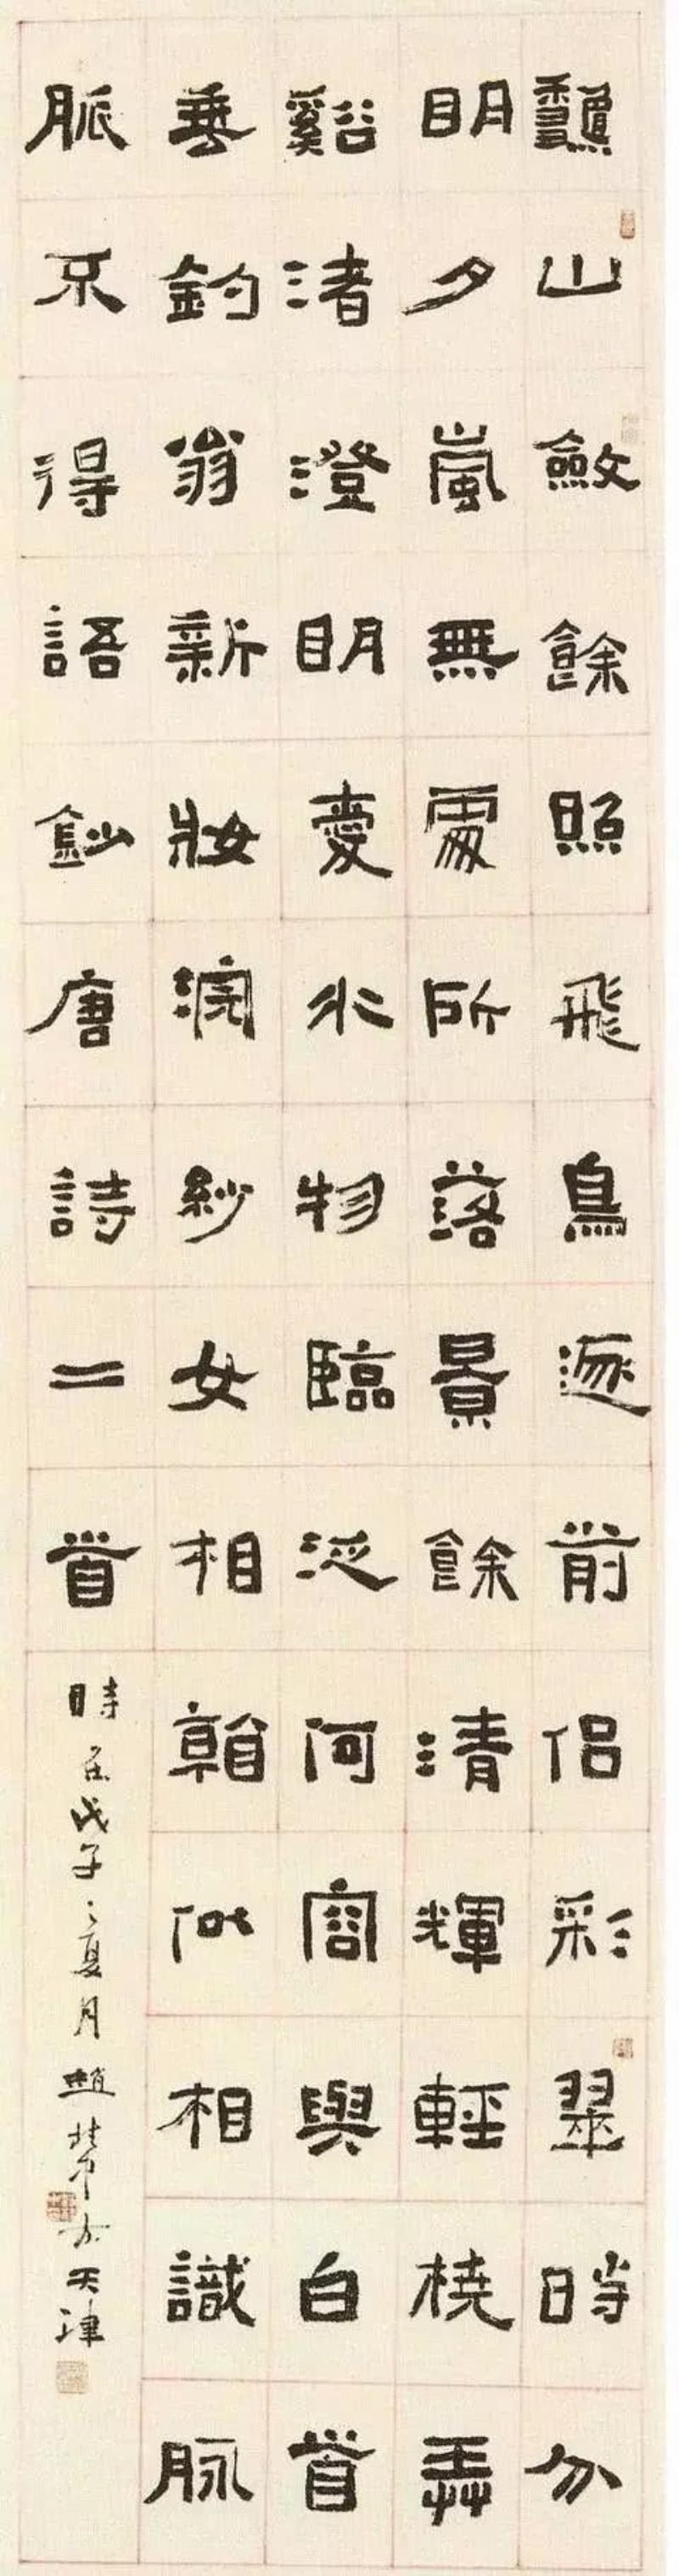 龝山斂餘照飛鳥逐前侣彩翠時分
明夕嵐無處所落景餘清輝輕橈弄
谿渚澄明愛水物臨泛何容與白首
垂釣翁新妝浣紗女相看似相識脈
脈不得語鈔唐詩二首
時在戊子之夏月趙 於天津